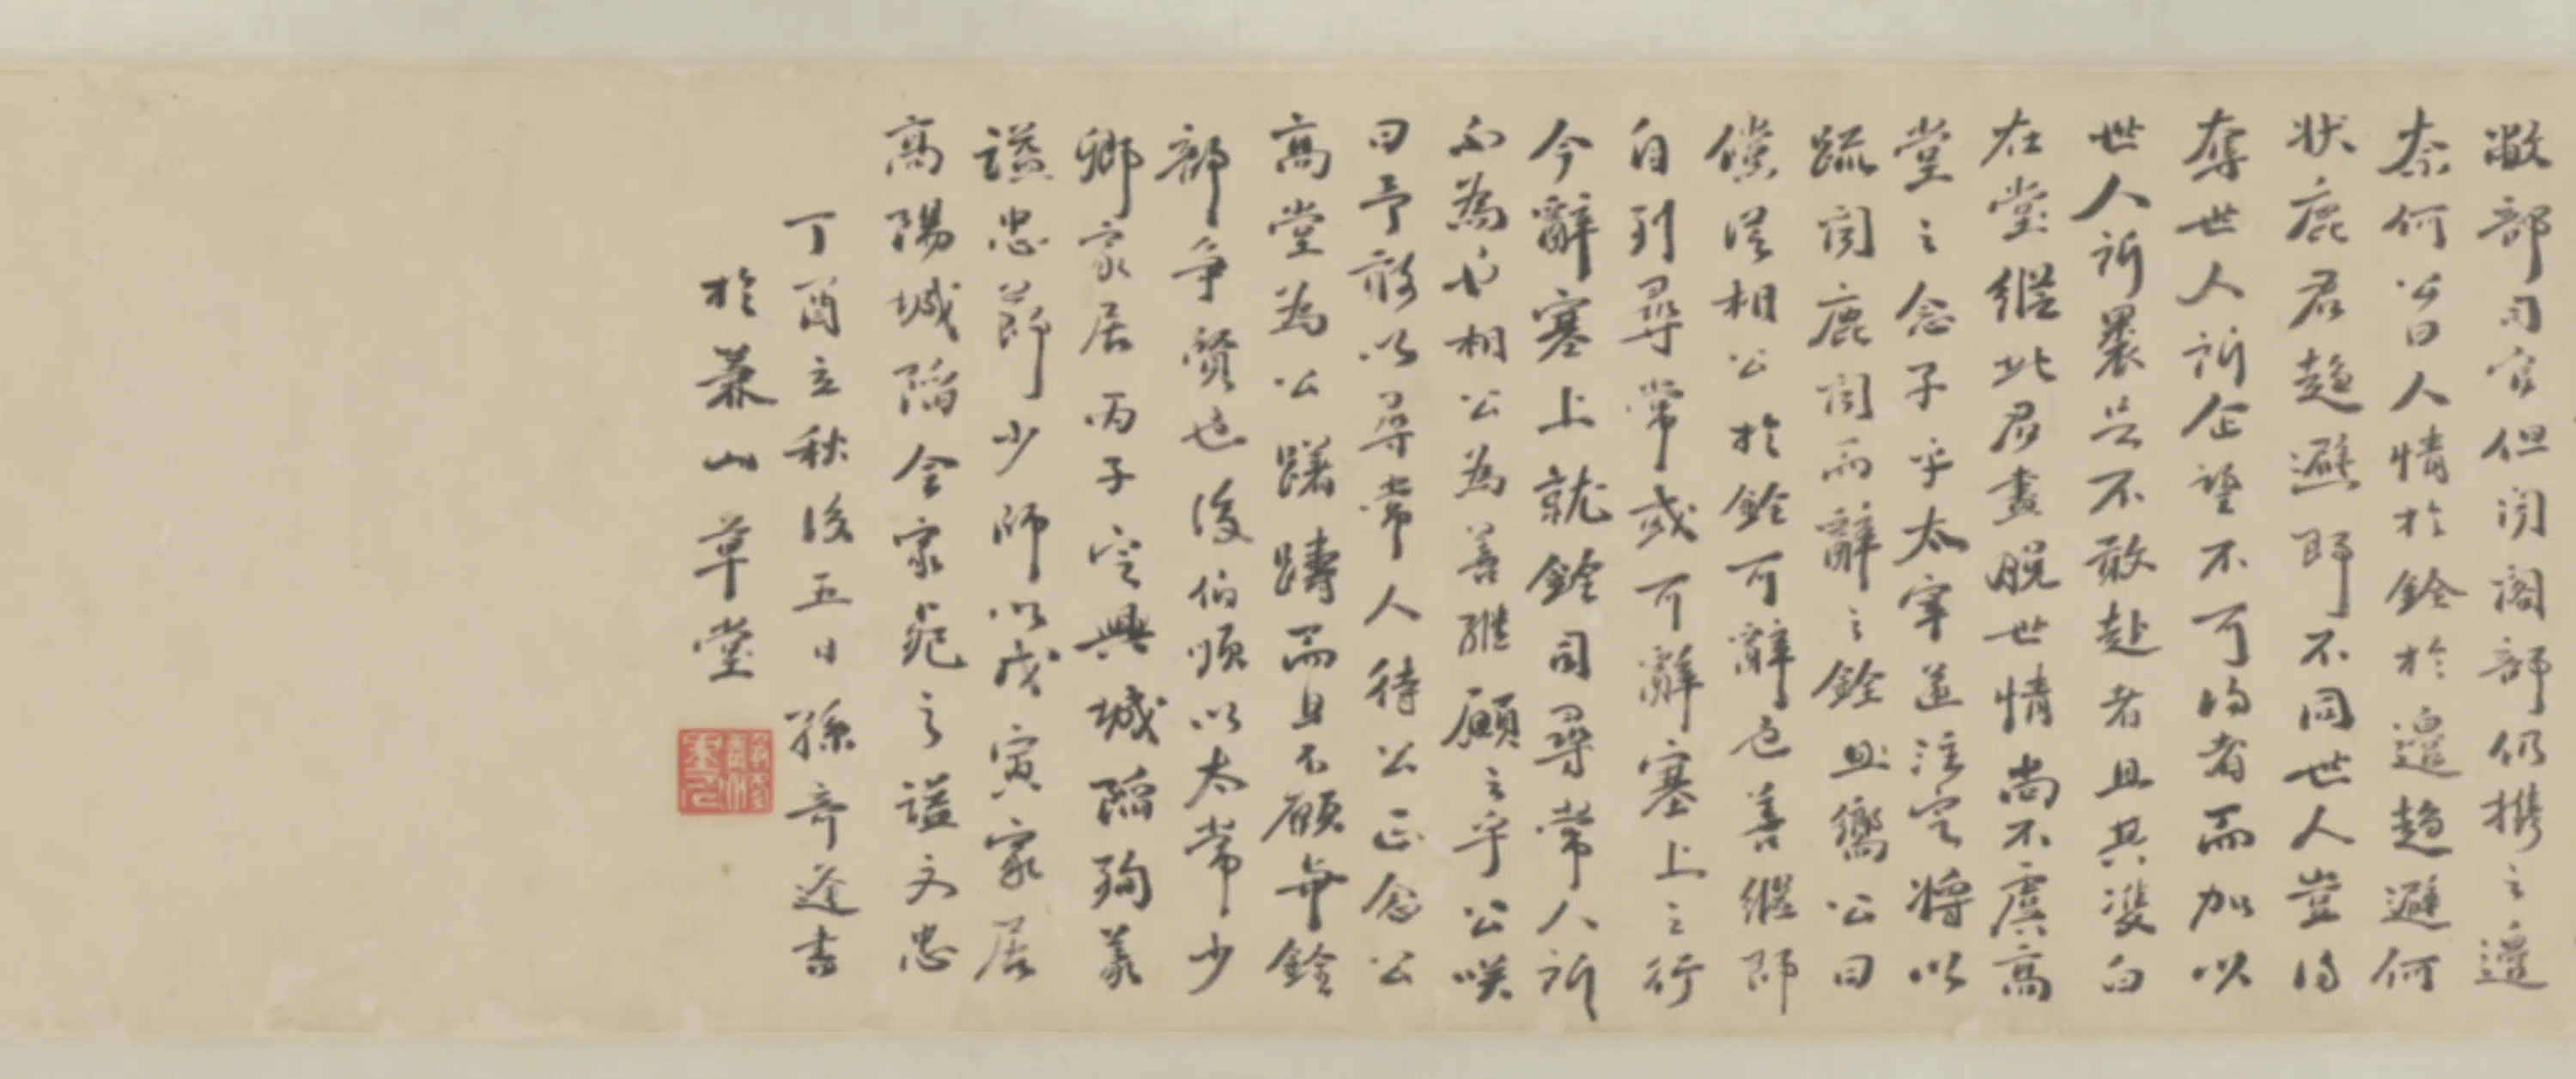 敝部司官但閱閣部仍攜之邊
奈何公曰人情於銓於邊趨避何
狀鹿君趨避即不同世人豈得
奪世人所企望不可得者而加以
世人所畏且不敢赴者且其雙白
在堂繼此君盡脫世情尚不虞高
堂之念子乎太宰遂注定將以
疏閣鹿閣而辭之銓且嚮公曰
儻從相公於銓可辭也善繼師
自列尋常或可辭塞上之行
今辭塞上就銓司尋常人所
不為也相公為善繼願之乎公咲
曰予敢以尋常人待公正念公
高堂為公躊躇而且不顧與銓
部爭賢也後伯順以太常少
卿家居丙子定興城陷殉義
謚忠節少師以戊寅家居
高陽城陷全家死之謚文忠
丁酉立秋後五日孫奇逢書
於兼山草堂